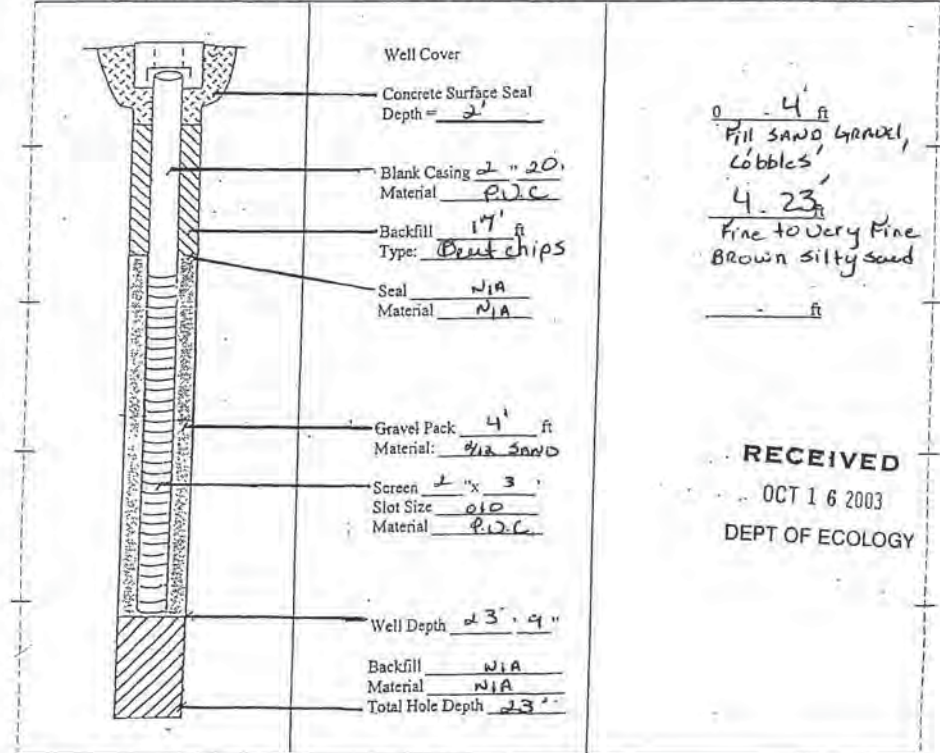 Well Cover
Concrete Surface Seal
Depth = 2'
Blank Casing 2 " 20'
Material P.V.C
Backfill 17' ft
Type: Bent chips
Seal N/A
Material N/A
Gravel Pack 4' ft
Material: 2/12 SAND
Screen 2 "x 3 '
Slot Size 010
Material P.V.C.
Well Depth 23' 9"
Backfill N/A
Material N/A
Total Hole Depth 23'
0 - 4' ft
Fill SAND GRAVEL,
Cobbles
4 - 23' ft
Fine to Very Fine
BROWN silty sand
- ft
RECEIVED
OCT 16 2003
DEPT OF ECOLOGY